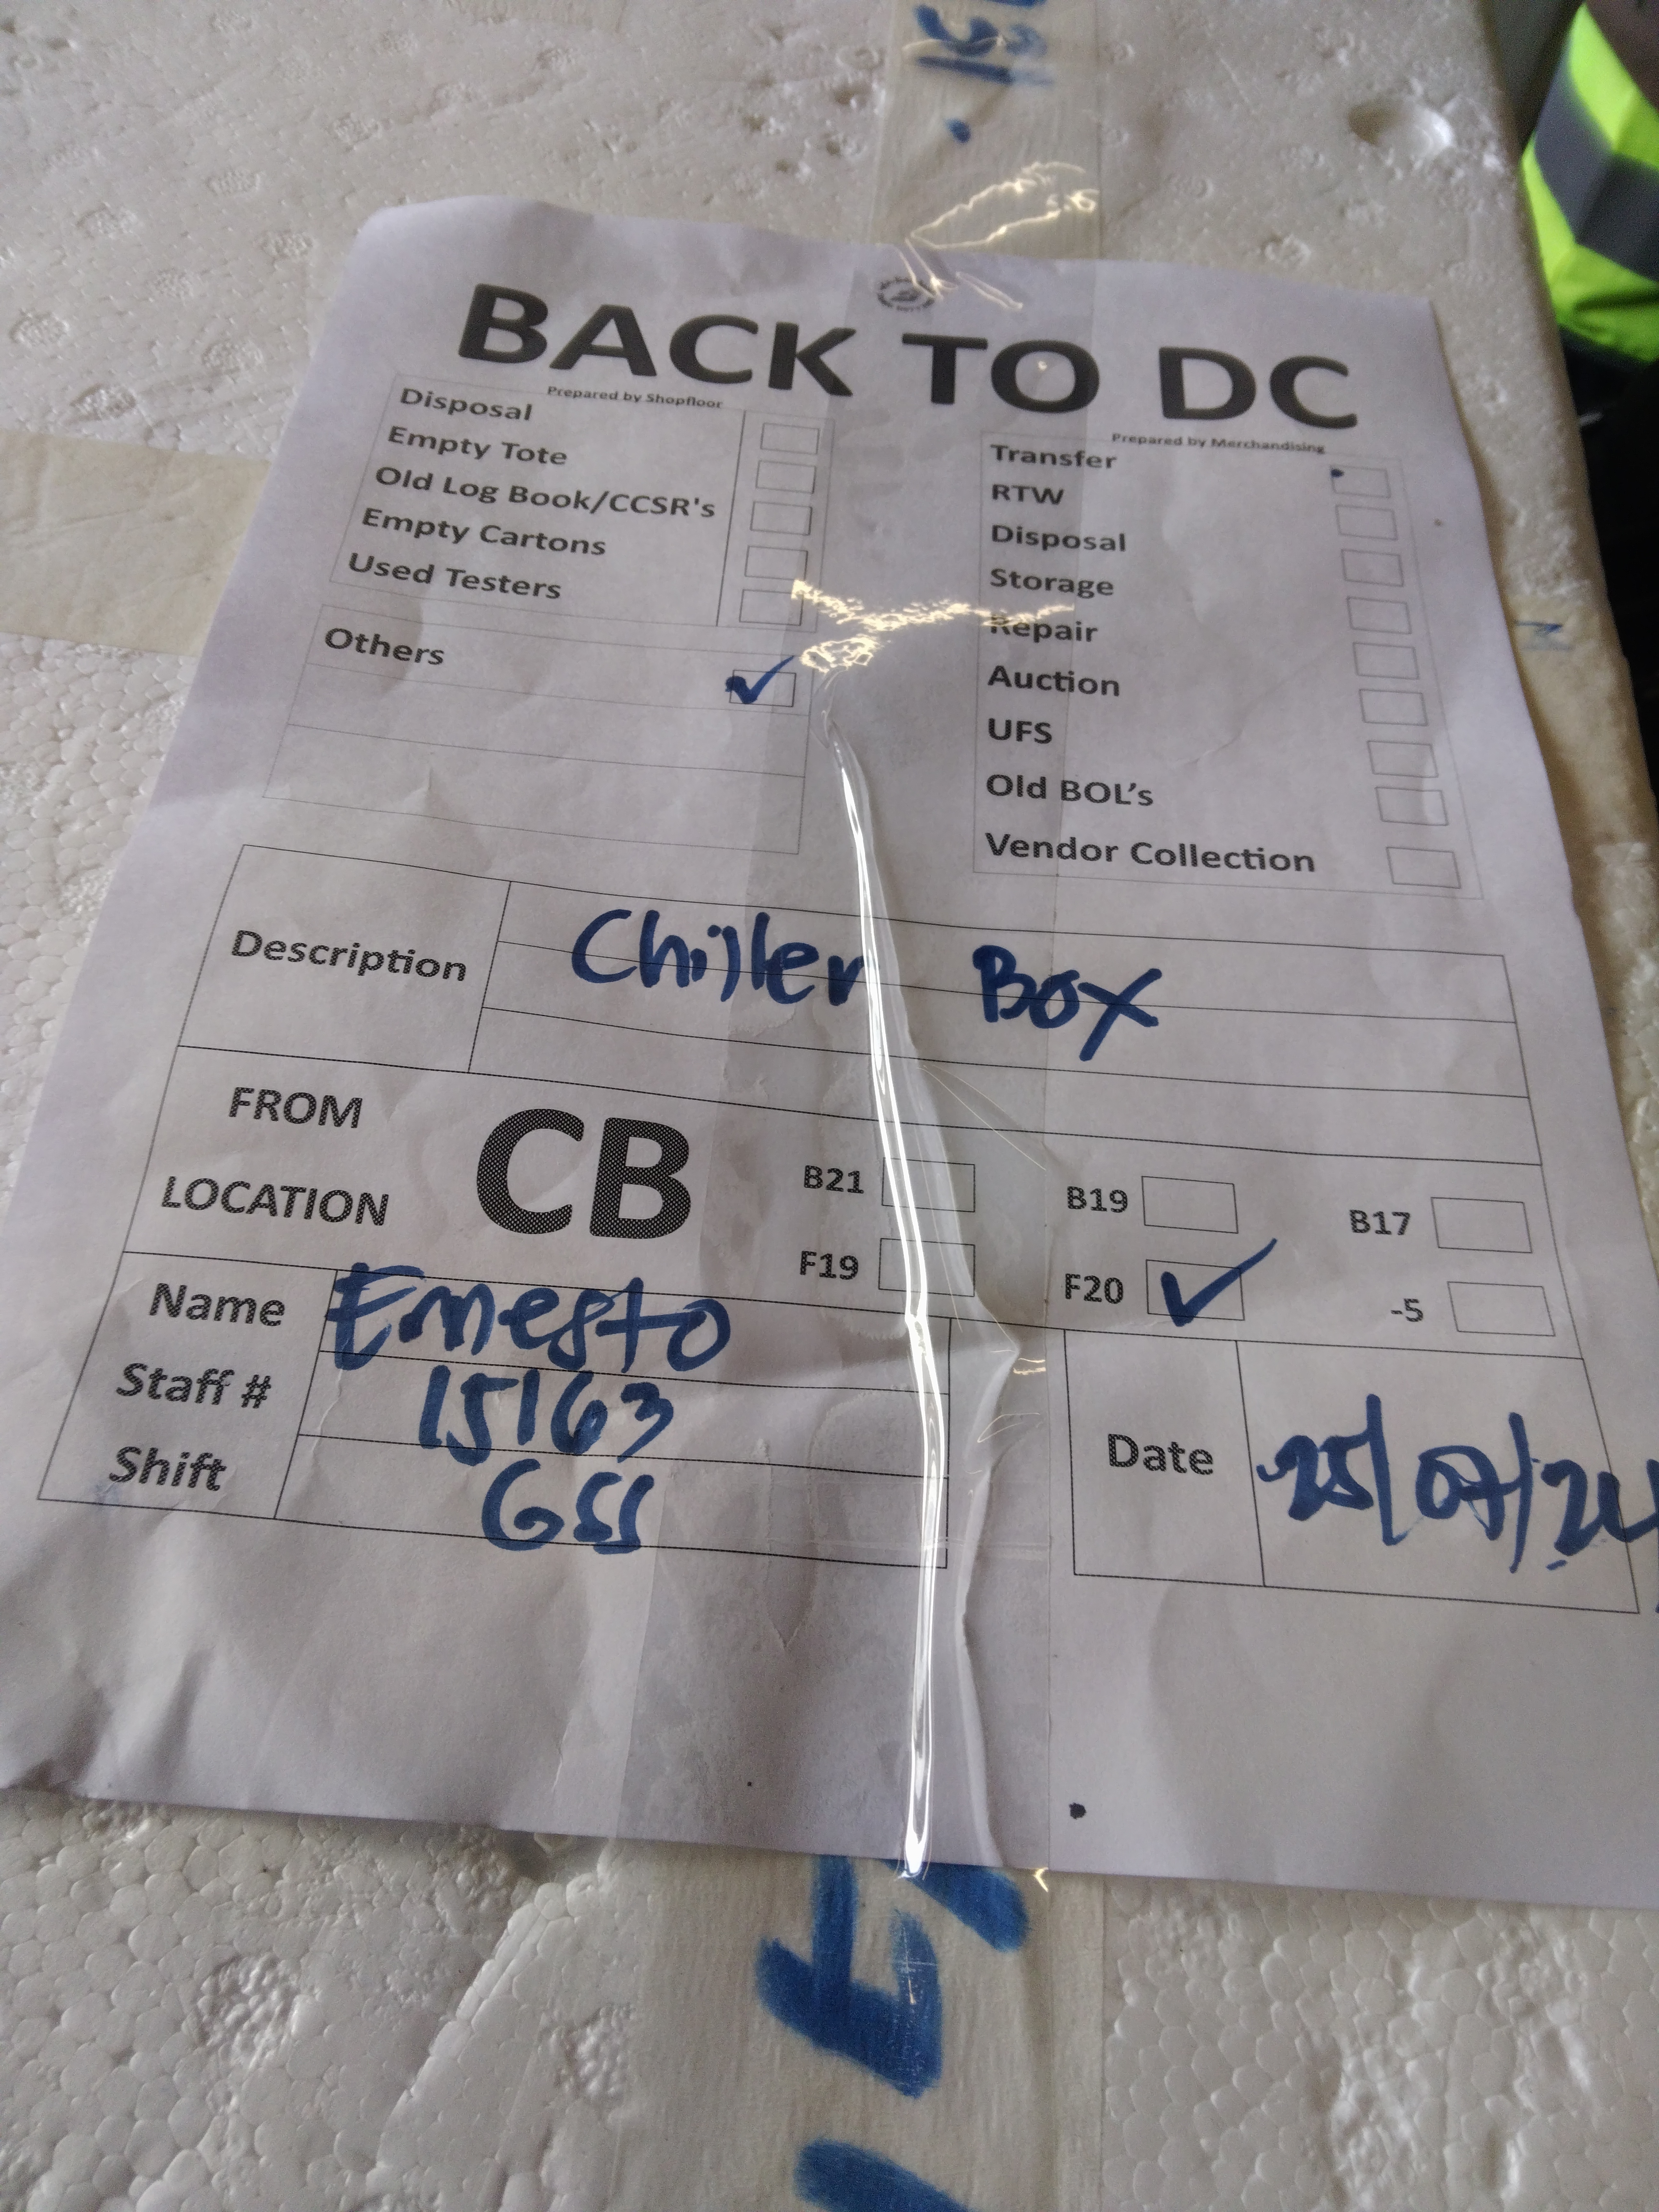 BACK TO DC
Prepared by Shopfloor
Disposal
Empty Tote
Old Log Book/CCSR's
Empty Cartons
Used Testers
Others
Prepared by Merchandising
Transfer
RTW
Disposal
Storage
Repair
Auction
UFS
Old BOL's
Vendor Collection
Description Chiller Box
FROM LOCATION CB
B21 B19 B17
F19 F20 -5
Name Ernesto
Staff # 15163
Shift GSS
Date 25/07/24